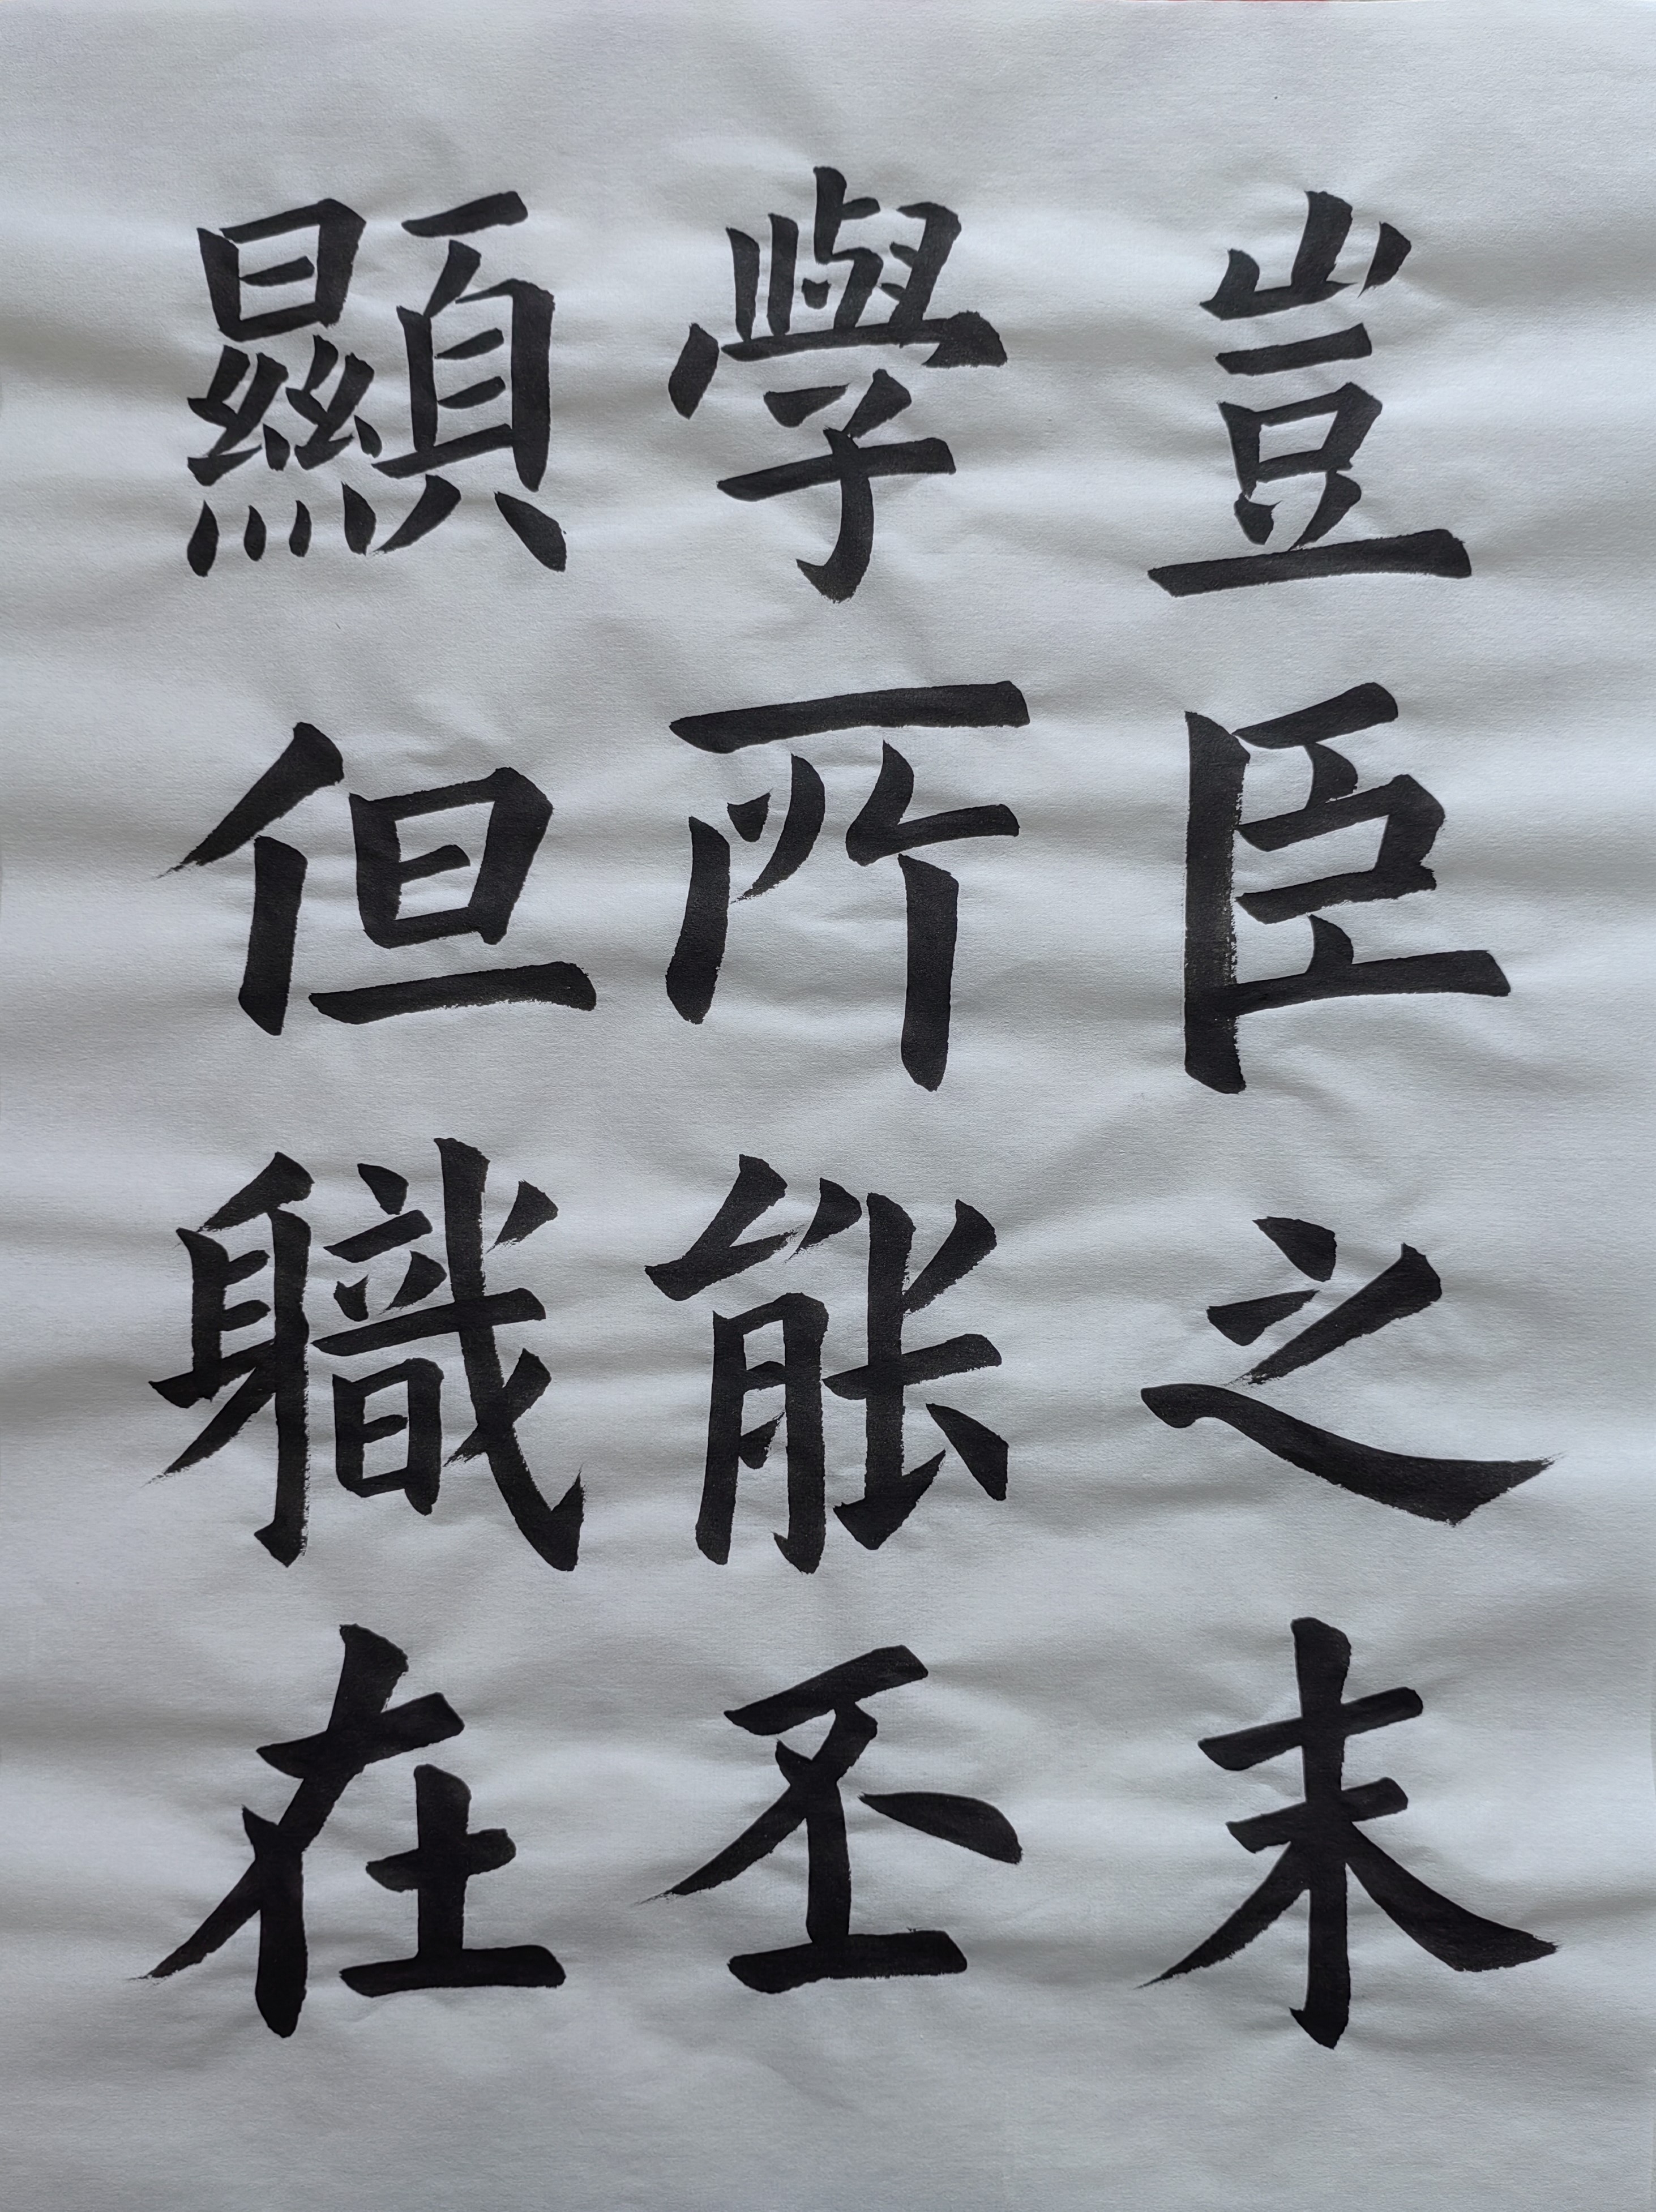 豈臣之末
學所能丕
顯但職在